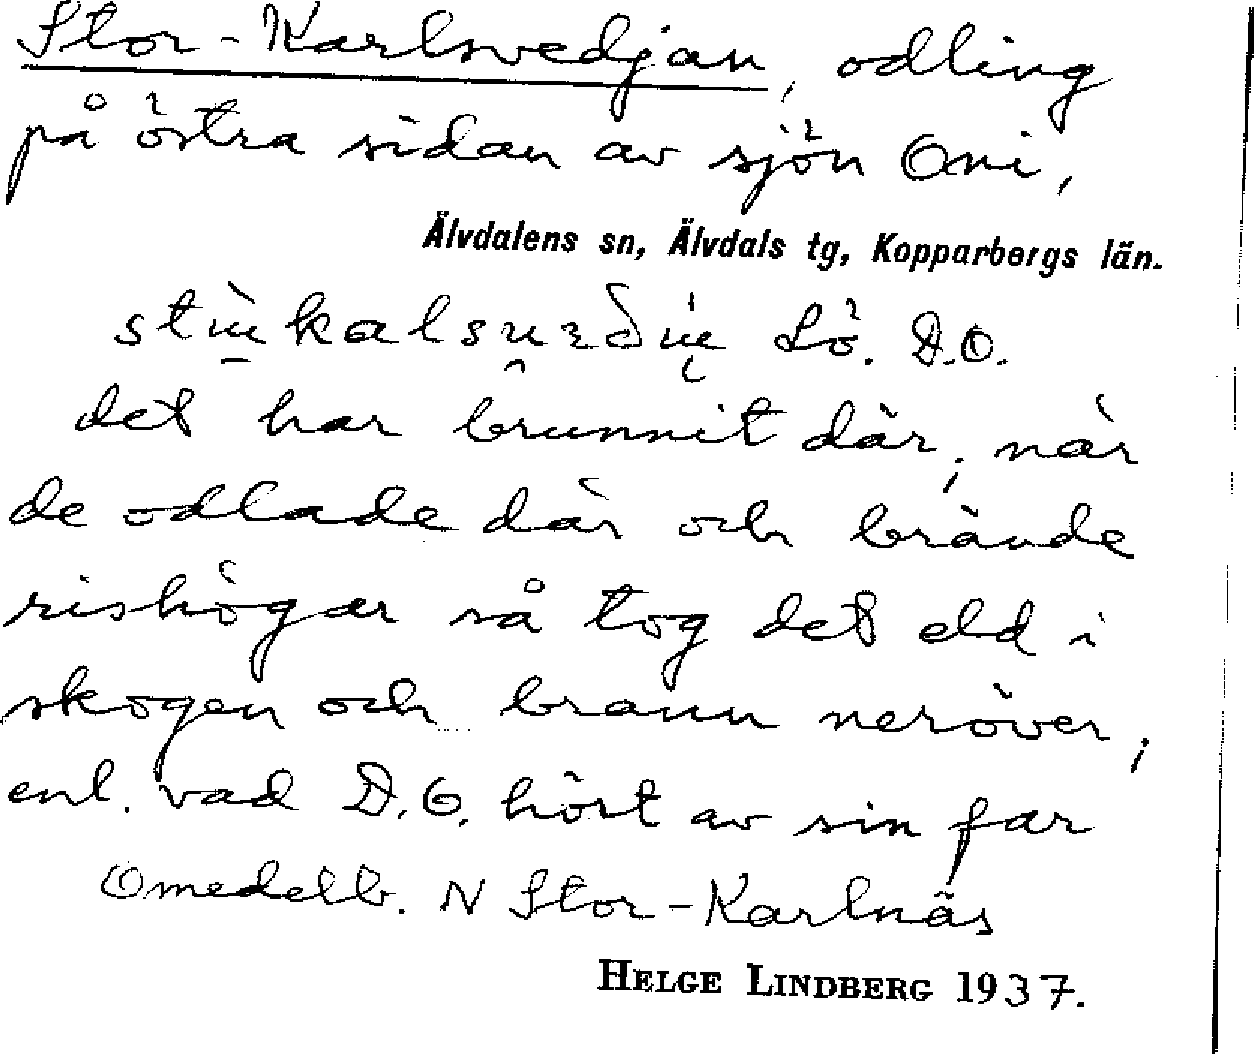 Stor-Karlsvedjan, odling
på östra sidan av sjön Oni,
Älvdalens sn, Älvdals tg, Kopparbergs län.
Lö. D.O.
det har brunnit där, när
de odlade där och brände
rishögar så tog det eld i
skogen och brann neröver,
enl. vad D.O. hört av sin far
Omedelb. N Stor-Karlnäs
HELGE LINDBERG 1937.